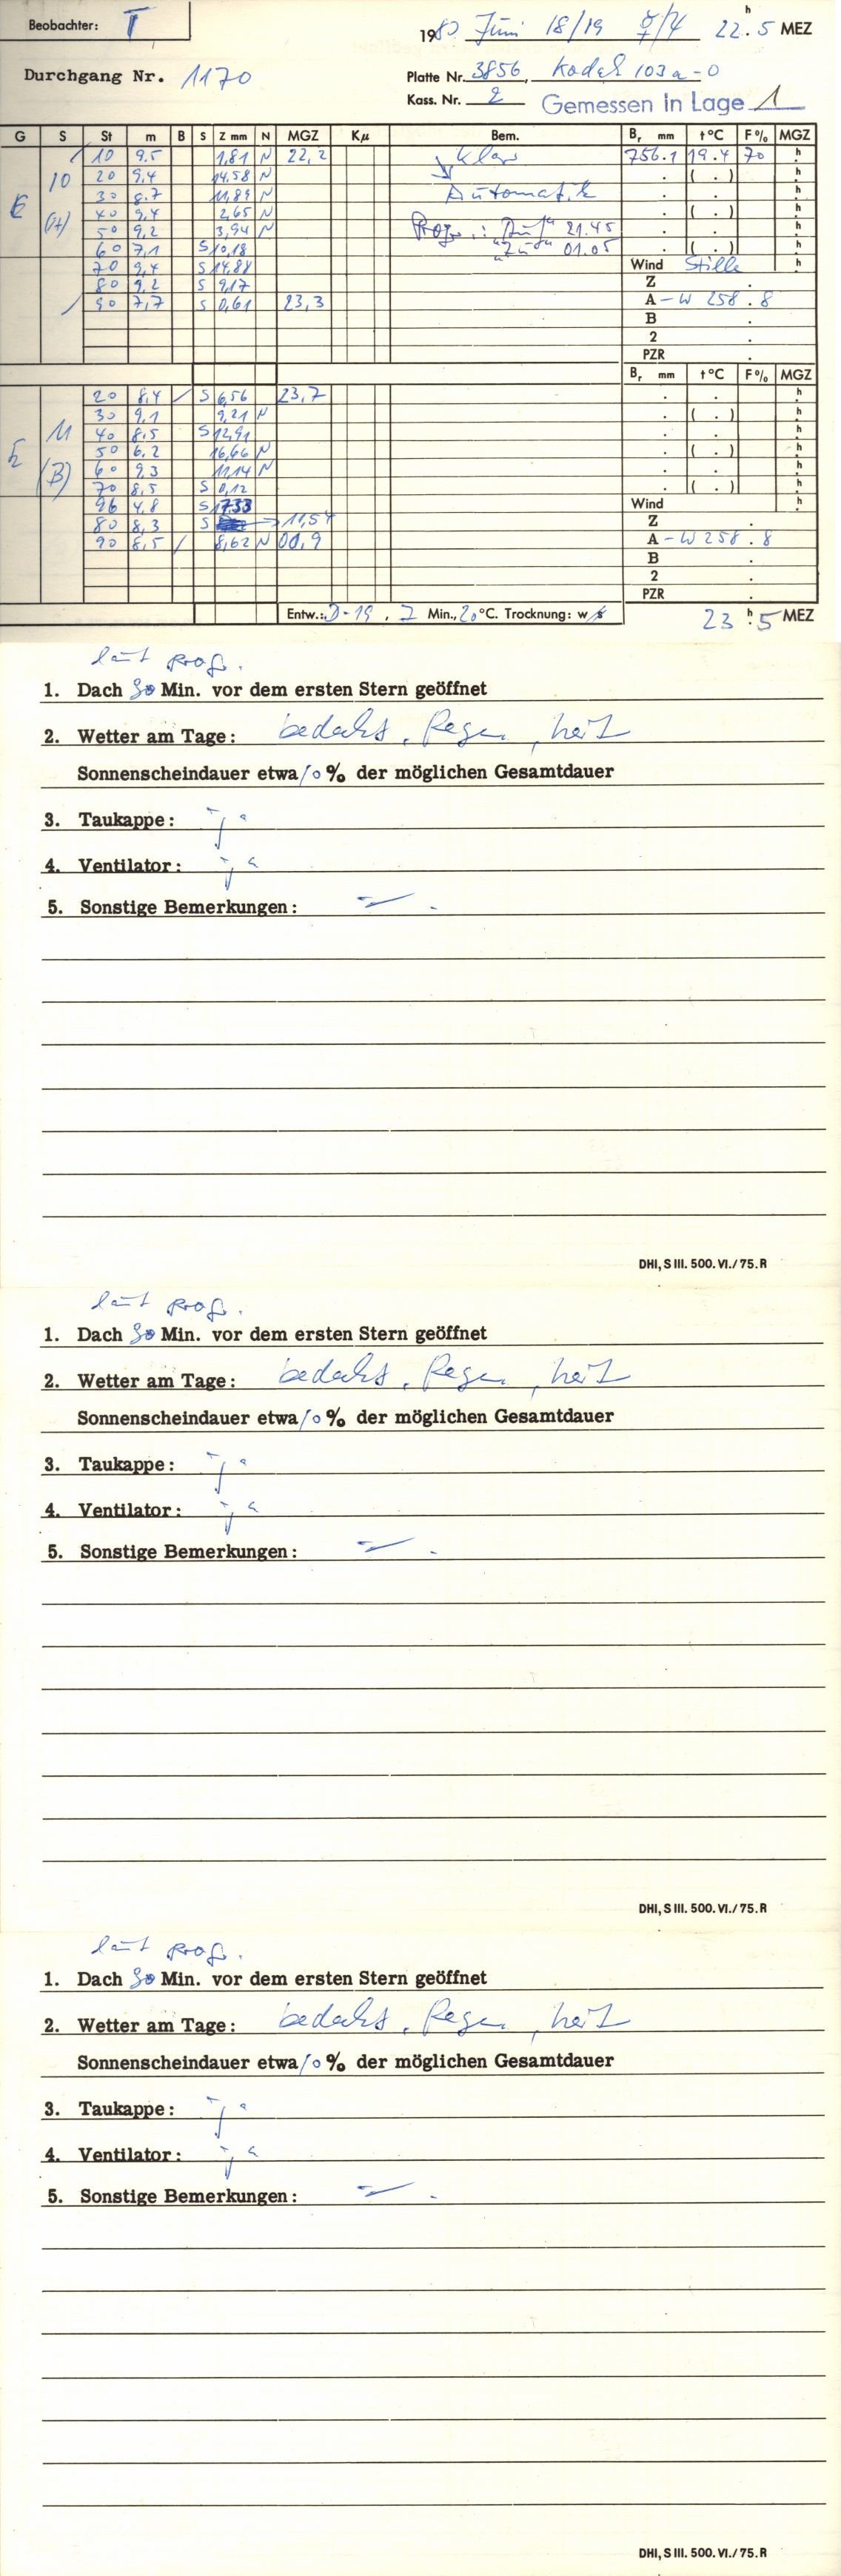 Beobachter: T
1980 Juni 18/19 ☿/♃ 22 h. 5 MEZ
Durchgang Nr. 1170
Platte Nr. 3856, Kodak 103 a-O
Kass. Nr. 2 Gemessen in Lage 1
G S St m B S Z mm N MGZ Kμ Bem. Br mm t°C F% MGZ
10 9.5 1,81 N 22,2 klar 756.1 19.4 70 h
10 20 9,4 14,58 N ( . )
30 8.7 11,89 N Automatik h
(H) 40 9,4 2,65 N ( . ) h
50 9,2 3,94 N Prog.: "Auf" 21.45 h
60 7,1 S 10,18 "Zu" 01.05 ( . ) h
70 9,4 S 14,88 Wind Stille h
80 9,2 S 9,17 Z .
90 7,7 S 0,61 23,3 A - W 258 . 8
B .
2 .
PZR .
Br mm t°C F% MGZ
20 8,4 S 6,56 23,7 . . h
30 9,1 9,21 N . ( . ) h
11 40 8,5 S 12,91 . . h
50 6,2 16,66 N . ( . ) h
(B) 60 9,3 11,14 N . . h
70 8,5 S 0,12 . ( . ) h
96 4,8 S 17.33 Wind h
80 8,3 S → 11,54 Z .
90 8,5 8,62 N 00,9 A - W 258 . 8
B .
2 .
PZR .
Entw.: D-19, 7 Min., 20 °C. Trocknung: w/s 23 h. 5 MEZ
laut Prog.
1. Dach 30 Min. vor dem ersten Stern geöffnet
2. Wetter am Tage: bedeckt, Regen, heiß
Sonnenscheindauer etwa 10 % der möglichen Gesamtdauer
3. Taukappe: ja
4. Ventilator: ja
5. Sonstige Bemerkungen: — .
DHI, S III. 500. VI./75. R
laut Prog.
1. Dach 30 Min. vor dem ersten Stern geöffnet
2. Wetter am Tage: bedeckt, Regen, heiß
Sonnenscheindauer etwa 10 % der möglichen Gesamtdauer
3. Taukappe: ja
4. Ventilator: ja
5. Sonstige Bemerkungen: — .
DHI, S III. 500. VI./75. R
laut Prog.
1. Dach 30 Min. vor dem ersten Stern geöffnet
2. Wetter am Tage: bedeckt, Regen, heiß
Sonnenscheindauer etwa 10 % der möglichen Gesamtdauer
3. Taukappe: ja
4. Ventilator: ja
5. Sonstige Bemerkungen: — .
DHI, S III. 500. VI./75. R